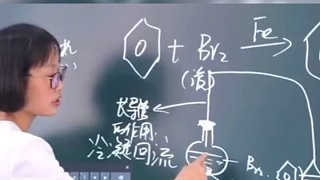 + Br₂ Fe →
(液)
长导管
作用
冷凝回流
Br₂